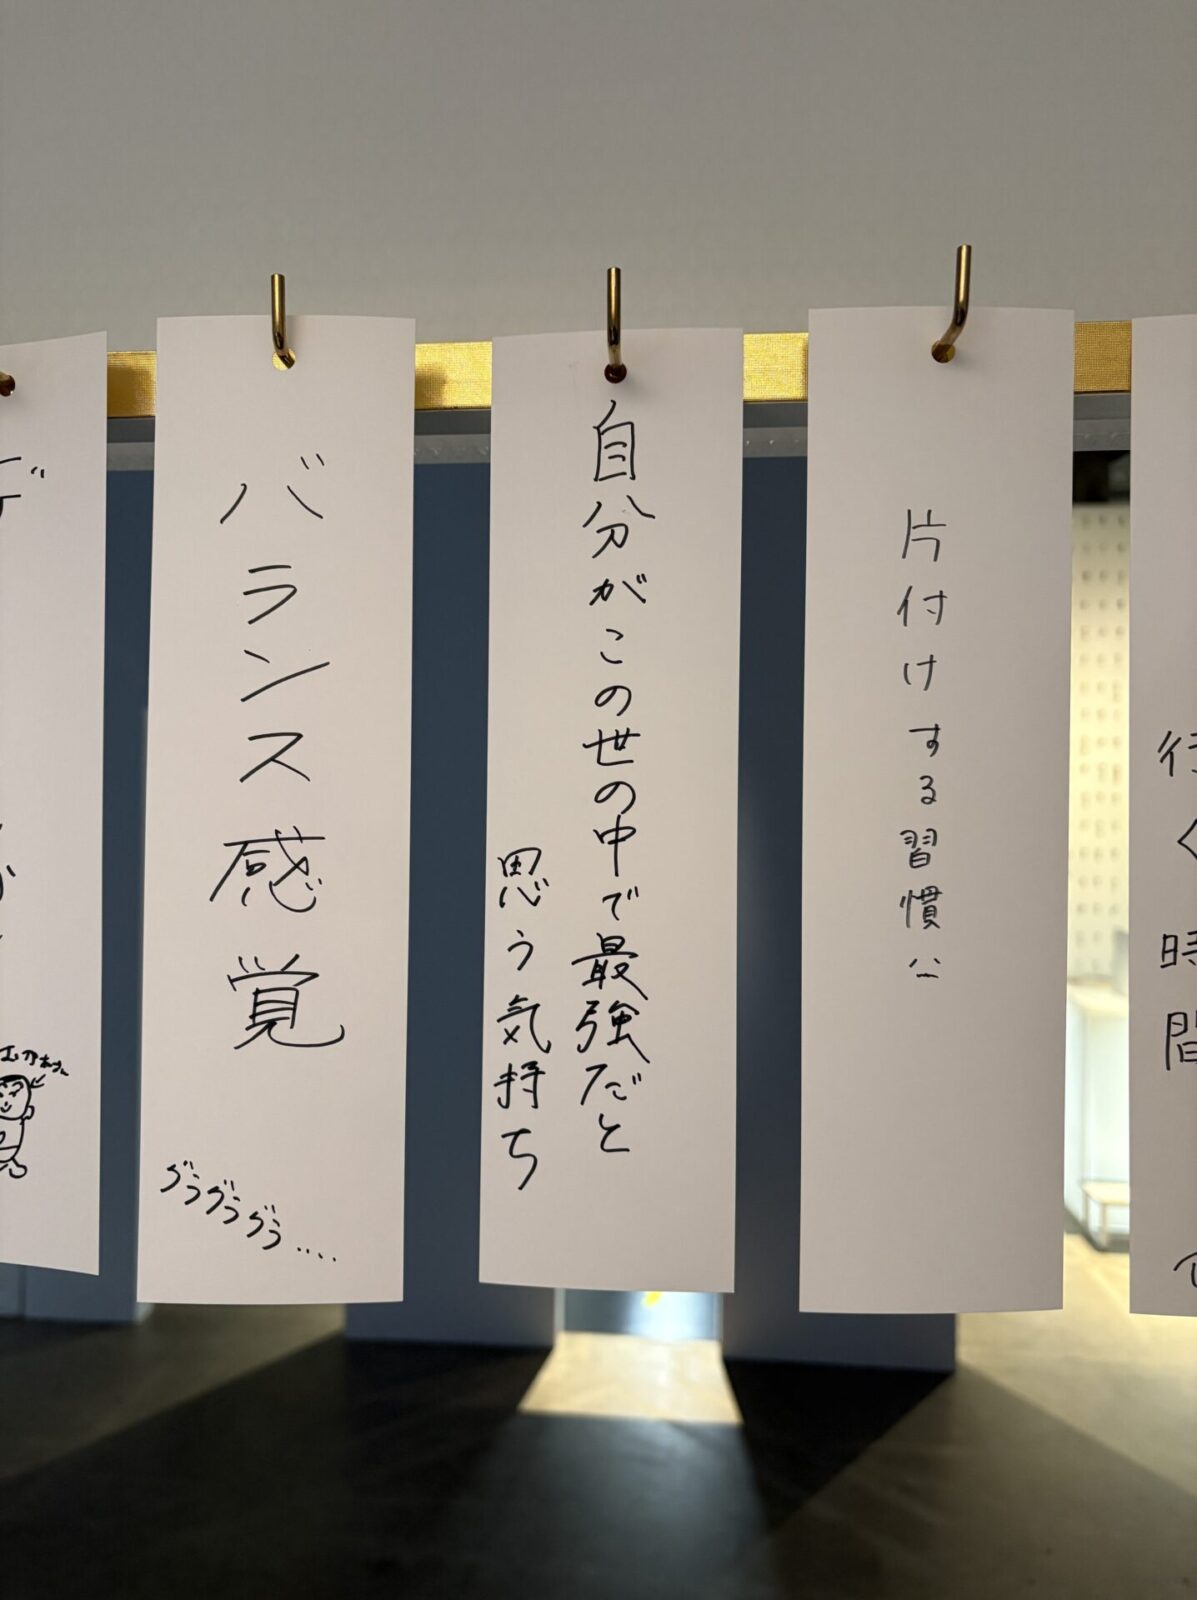 バランス感覚
グラグラグラ....
自分がこの世の中で最強だと
思う気持ち
片付けする習慣
行く時間